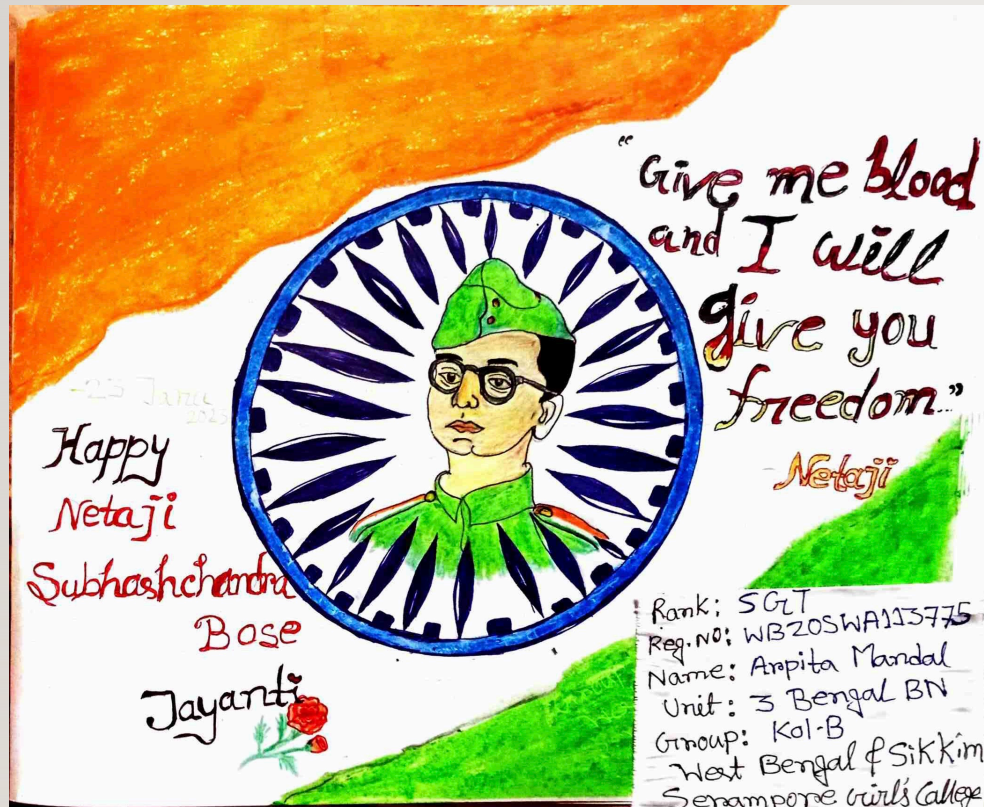 "Give me blood
and I will
give you
freedom."
Netaji
Happy
Netaji
Subhashchandra
Bose
Jayanti
Rank: SGT
Reg.No: WB20SWA113775
Name: Arpita Mandal
Unit: 3 Bengal BN
Group: Kol-B
West Bengal & Sikkim
Serampore Girl's College